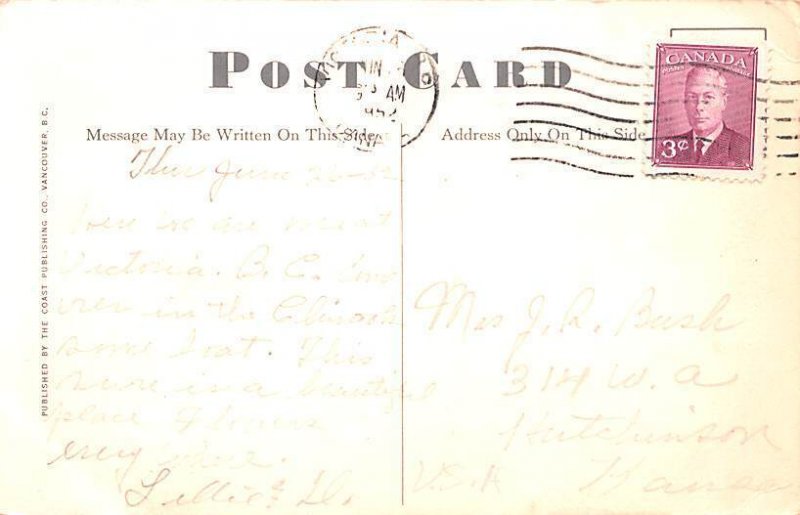 POST CARD
Message May Be Written On This Side
Address Only On This Side
CANADA
POSTES POSTAGE
3¢
AM
PUBLISHED BY THE COAST PUBLISHING CO., VANCOUVER, B.C.
Thur June 26-52
Here we are
Victoria. B. C.
over in the Chinook
some boat. This
sure is a beautiful
place Flowers
every where.
Lillie & D.
Mrs J. R. Bush
314 W. A
Hutchinson
U.S.A Kansas